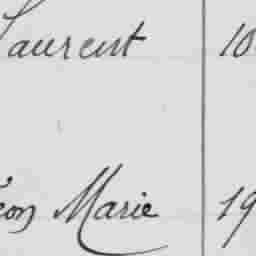 Laurent 10
éon Marie 19